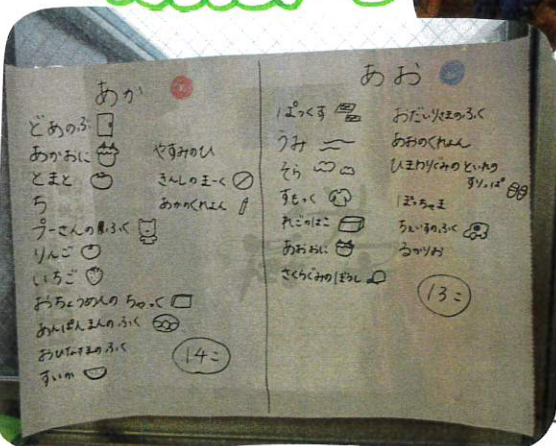 あか
どあのぶ
あかおに
とまと
ち
プーさんのふく
りんご
いちご
おちょうめんの ちゃっく
あんぱんまんのふく
おひなさまのふく
すいか
やすみのひ
きんしのまーく
あかのくれよん
14こ
あお
ぱっくす
うみ
そら
すもっく
れごのはこ
あおおに
さくらぐみのぼうし
おだいりさまのふく
あおのくれよん
ひまわりぐみのといれの
すりっぱ
ぽっちゃま
ちぇいすのふく
るかりお
13こ